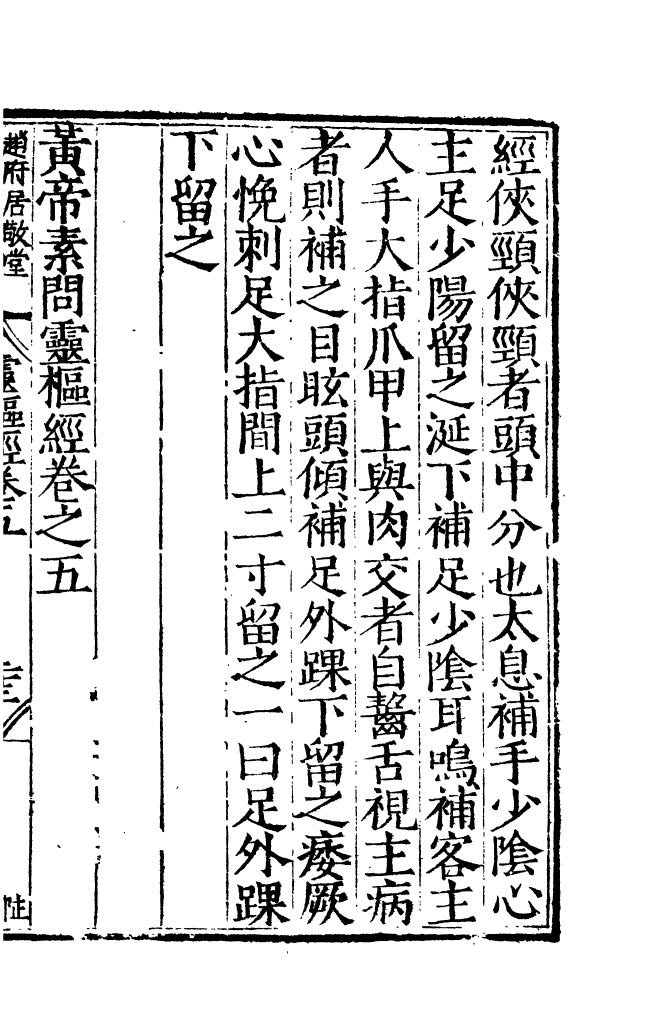 經俠頸俠頸者頭中分也太息補手少陰心
主足少陽留之涎下補足少陰耳鳴補客主
人手大指爪甲上與肉交者自齧舌視主病
者則補之目眩頭傾補足外踝下留之痿厥
心悗刺足大指間上二寸留之一曰足外踝
下留之
黃帝素問靈樞經卷之五
趙府居敬堂
靈樞經卷五